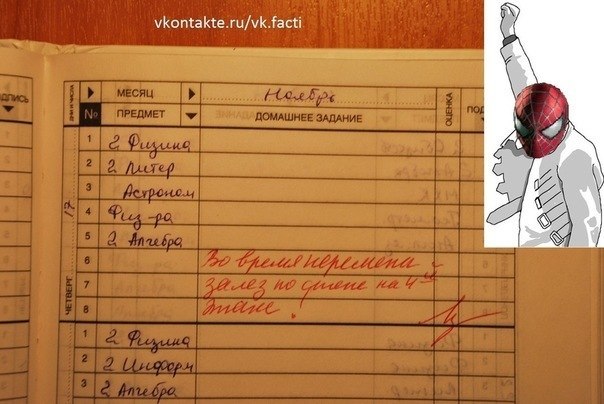 vkontakte.ru/vk.facti
ДПИСЬ
ДНИ И ЧИСЛА
МЕСЯЦ Ноябрь ОЦЕНКА
№ ПРЕДМЕТ ДОМАШНЕЕ ЗАДАНИЕ ПОД
17
ЧЕТВЕРГ
1 2 Физика
2 2 Литер
3 Астроном
4 Физ-ра
5 2 Алгебра
6 Во время перемены
7 залез по стене на 4ый
8 этаж.
1 2 Физика
2 2 Информ
3 2 Алгебра